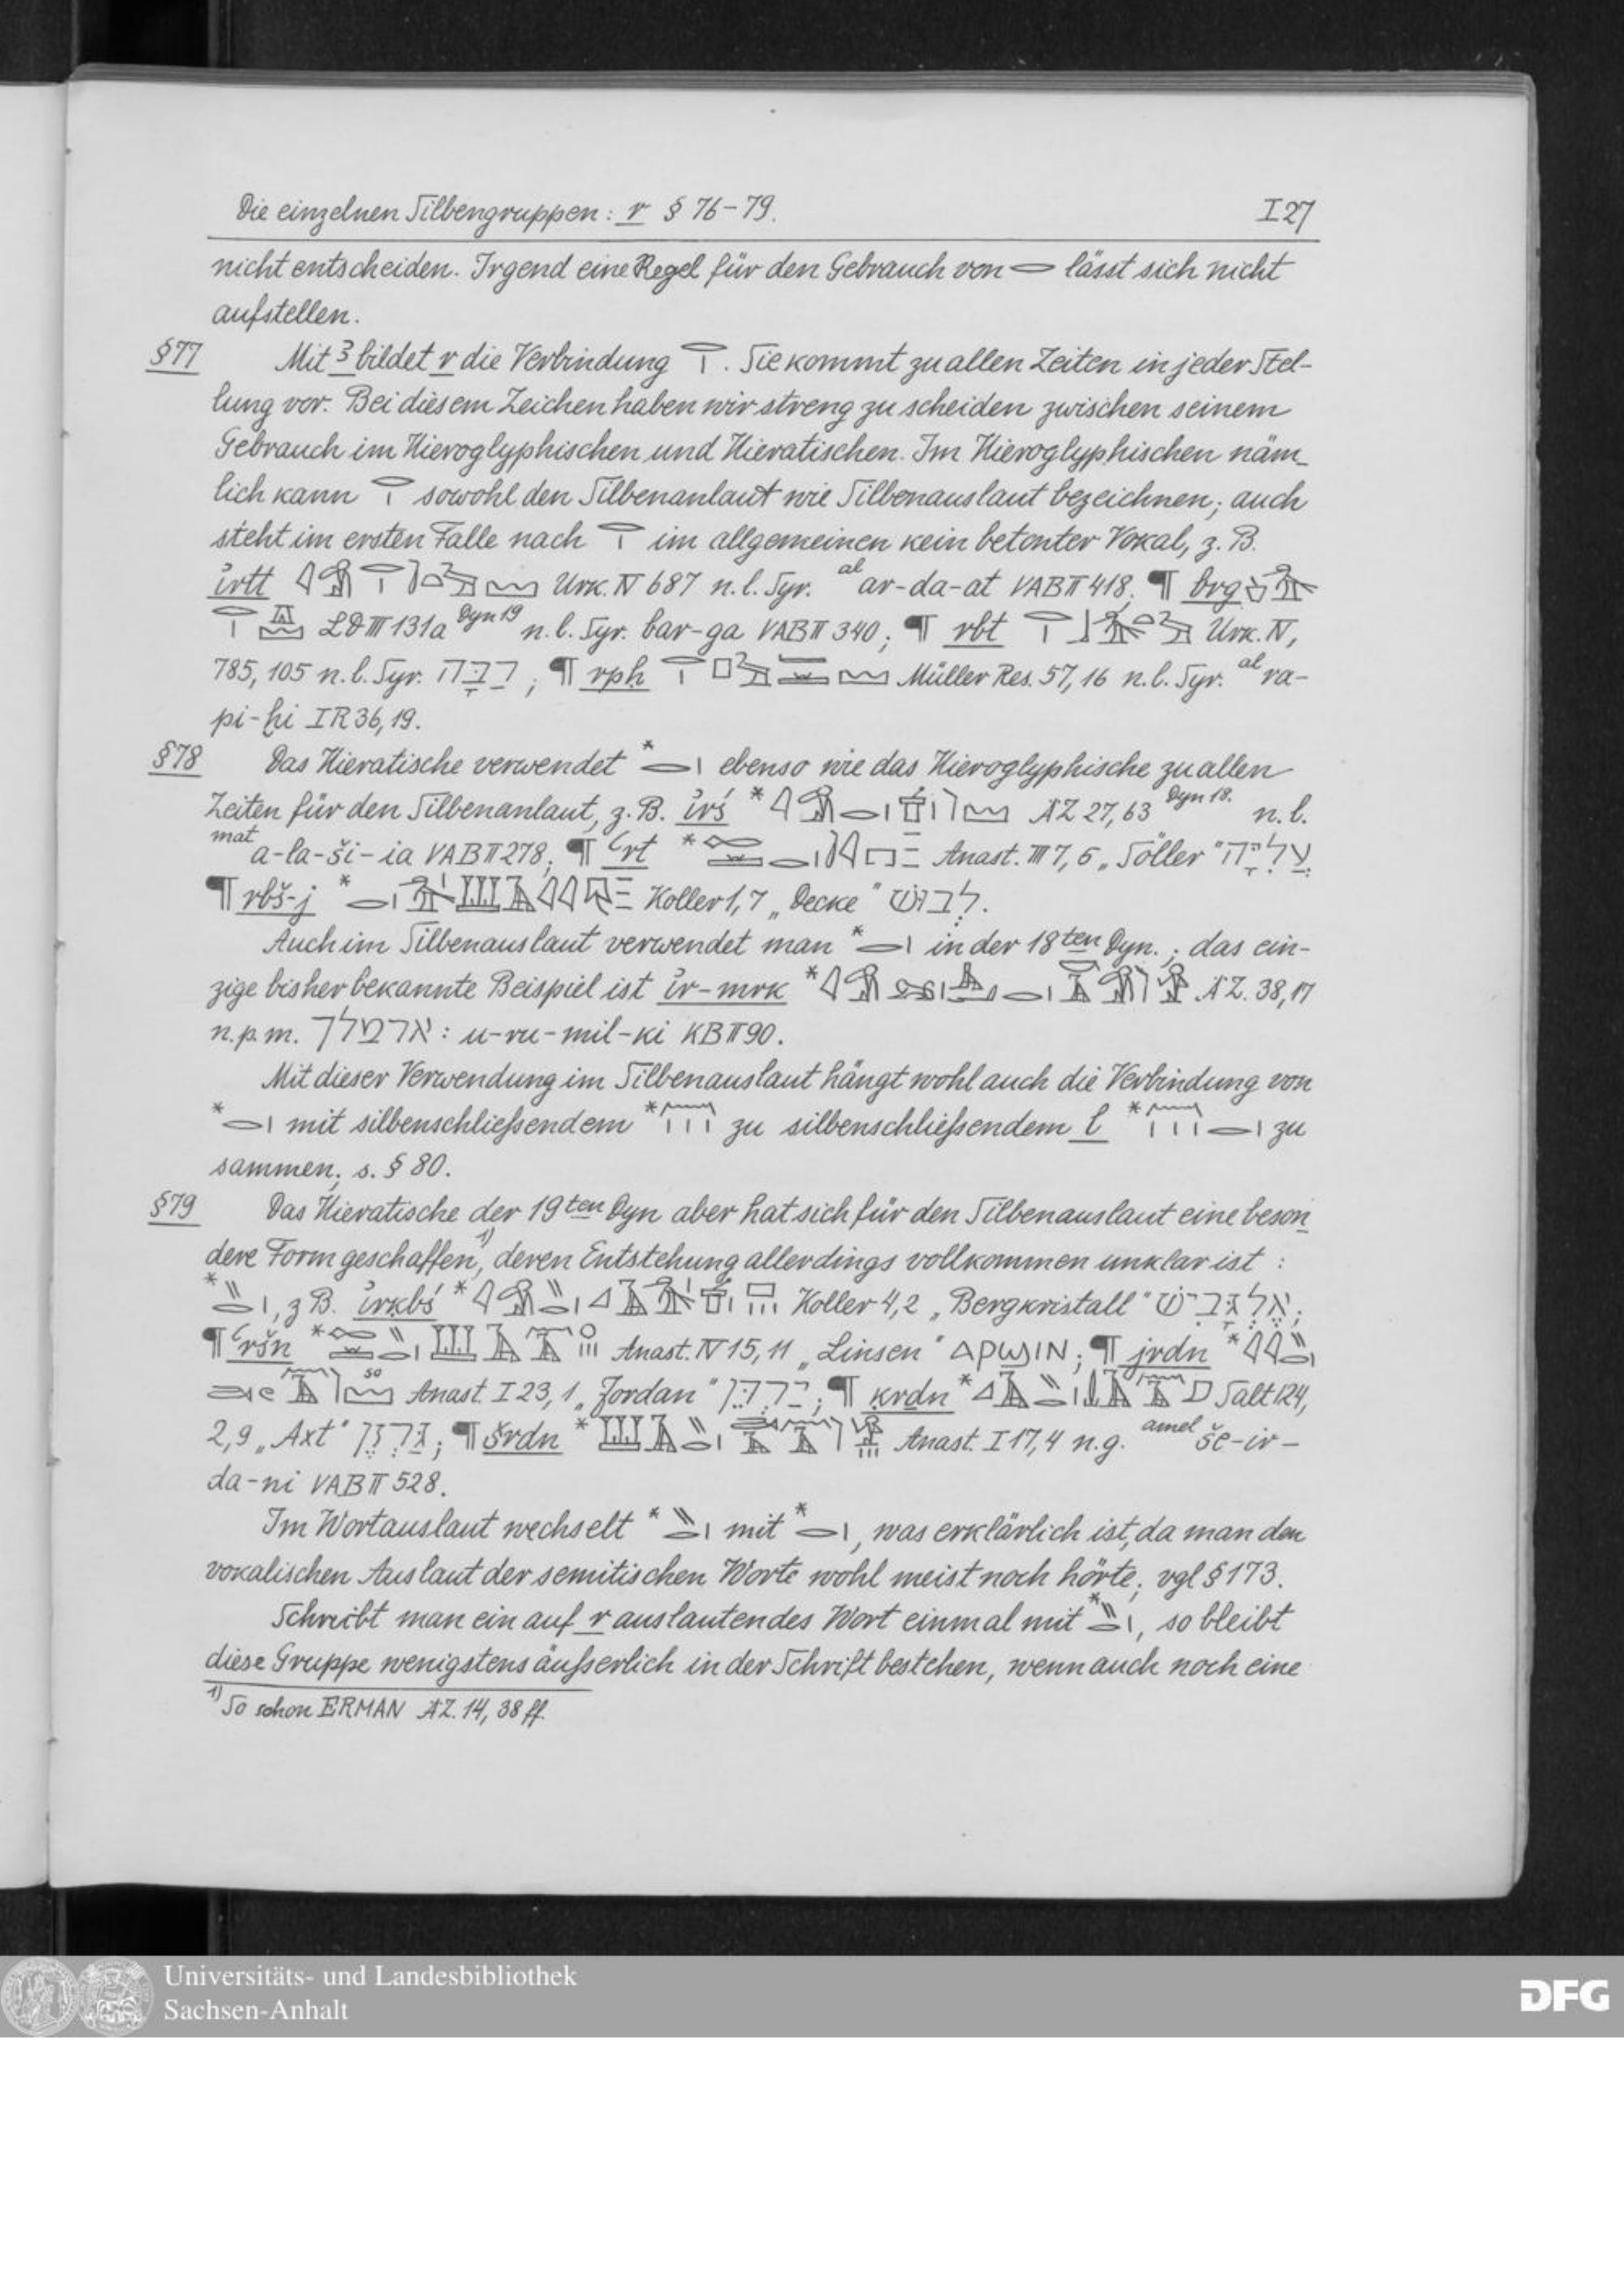 Die einzelnen Silbengruppen: r § 76-79. I 27
nicht entscheiden. Irgend eine Regel für den Gebrauch von 𓂋 lässt sich nicht
aufstellen.
§77 Mit ꜣ bildet r die Verbindung 𓂋𓏤. Sie kommt zu allen Zeiten in jeder Stel-
lung vor. Bei diesem Zeichen haben wir streng zu scheiden zwischen seinem
Gebrauch im Hieroglyphischen und Hieratischen. Im Hieroglyphischen näm-
lich kann 𓂋𓏤 sowohl den Silbenanlaut wie Silbenauslaut bezeichnen; auch
steht im ersten Falle nach 𓂋𓏤 im allgemeinen kein betonter Vokal, z. B.
i͗rtt Urk. IV 687 n. l. Syr. al ar-da-at VAB II 418; ¶ brg
LD III 131a Dyn 19 n. l. Syr. bar-ga VAB II 340; ¶ rbt Urk. IV,
785, 105 n. l. Syr. רַבָּה; ¶ rpḥ Müller Res. 57, 16 n. l. Syr. al ra-
pi-ḫi IR 36, 19.
§78 Das Hieratische verwendet * 𓂋𓏤 ebenso wie das Hieroglyphische zu allen
Zeiten für den Silbenanlaut, z. B. i͗rś * ÄZ 27, 63 Dyn 18. n. l.
mat a-la-ši-ia VAB II 278; ¶ ꜥrt * Anast. III 7, 5 „Söller" עֲלִיָּה
¶ rbš-j * Koller 1, 7 „Decke" לְבוּשׁ.
Auch im Silbenauslaut verwendet man * 𓂋𓏤 in der 18ten Dyn.; das ein-
zige bisher bekannte Beispiel ist i͗r-mrk * ÄZ. 38, 17
n. p. m. ארמלך : u-ru-mil-ki KB II 90.
Mit dieser Verwendung im Silbenauslaut hängt wohl auch die Verbindung von
* 𓂋𓏤 mit silbenschließendem * 𓈖𓏥 zu silbenschließendem l * 𓈖𓏥𓂋𓏤 zu
sammen; s. § 80.
§79 Das Hieratische der 19ten Dyn aber hat sich für den Silbenauslaut eine beson
dere Form geschaffen 1), deren Entstehung allerdings vollkommen unklar ist :
* 𓂋𓏭𓏤, z B. i͗rḳbś * Koller 4, 2 „Bergkristall" אֶלְגָּבִישׁ;
¶ ꜥršn * Anast. IV 15, 11 „Linsen" ⲁⲣϣⲓⲛ; ¶ jrdn *
so Anast. I 23, 1 „Jordan" יַרְדֵּן; ¶ ḳrdn * Salt 124,
2, 9 „Axt" גַּרְזֶן; ¶ šrdn * Anast. I 17, 4 n. g. amel še-ir-
da-ni VAB II 528.
Im Wortauslaut wechselt * 𓂋𓏭𓏤 mit * 𓂋𓏤, was erklärlich ist, da man den
vokalischen Auslaut der semitischen Worte wohl meist noch hörte; vgl § 173.
Schreibt man ein auf r auslautendes Wort einmal mit * 𓂋𓏭𓏤, so bleibt
diese Gruppe wenigstens äußerlich in der Schrift bestehen, wenn auch noch eine
1) So schon ERMAN ÄZ. 14, 38 ff.
Universitäts- und Landesbibliothek
Sachsen-Anhalt
DFG